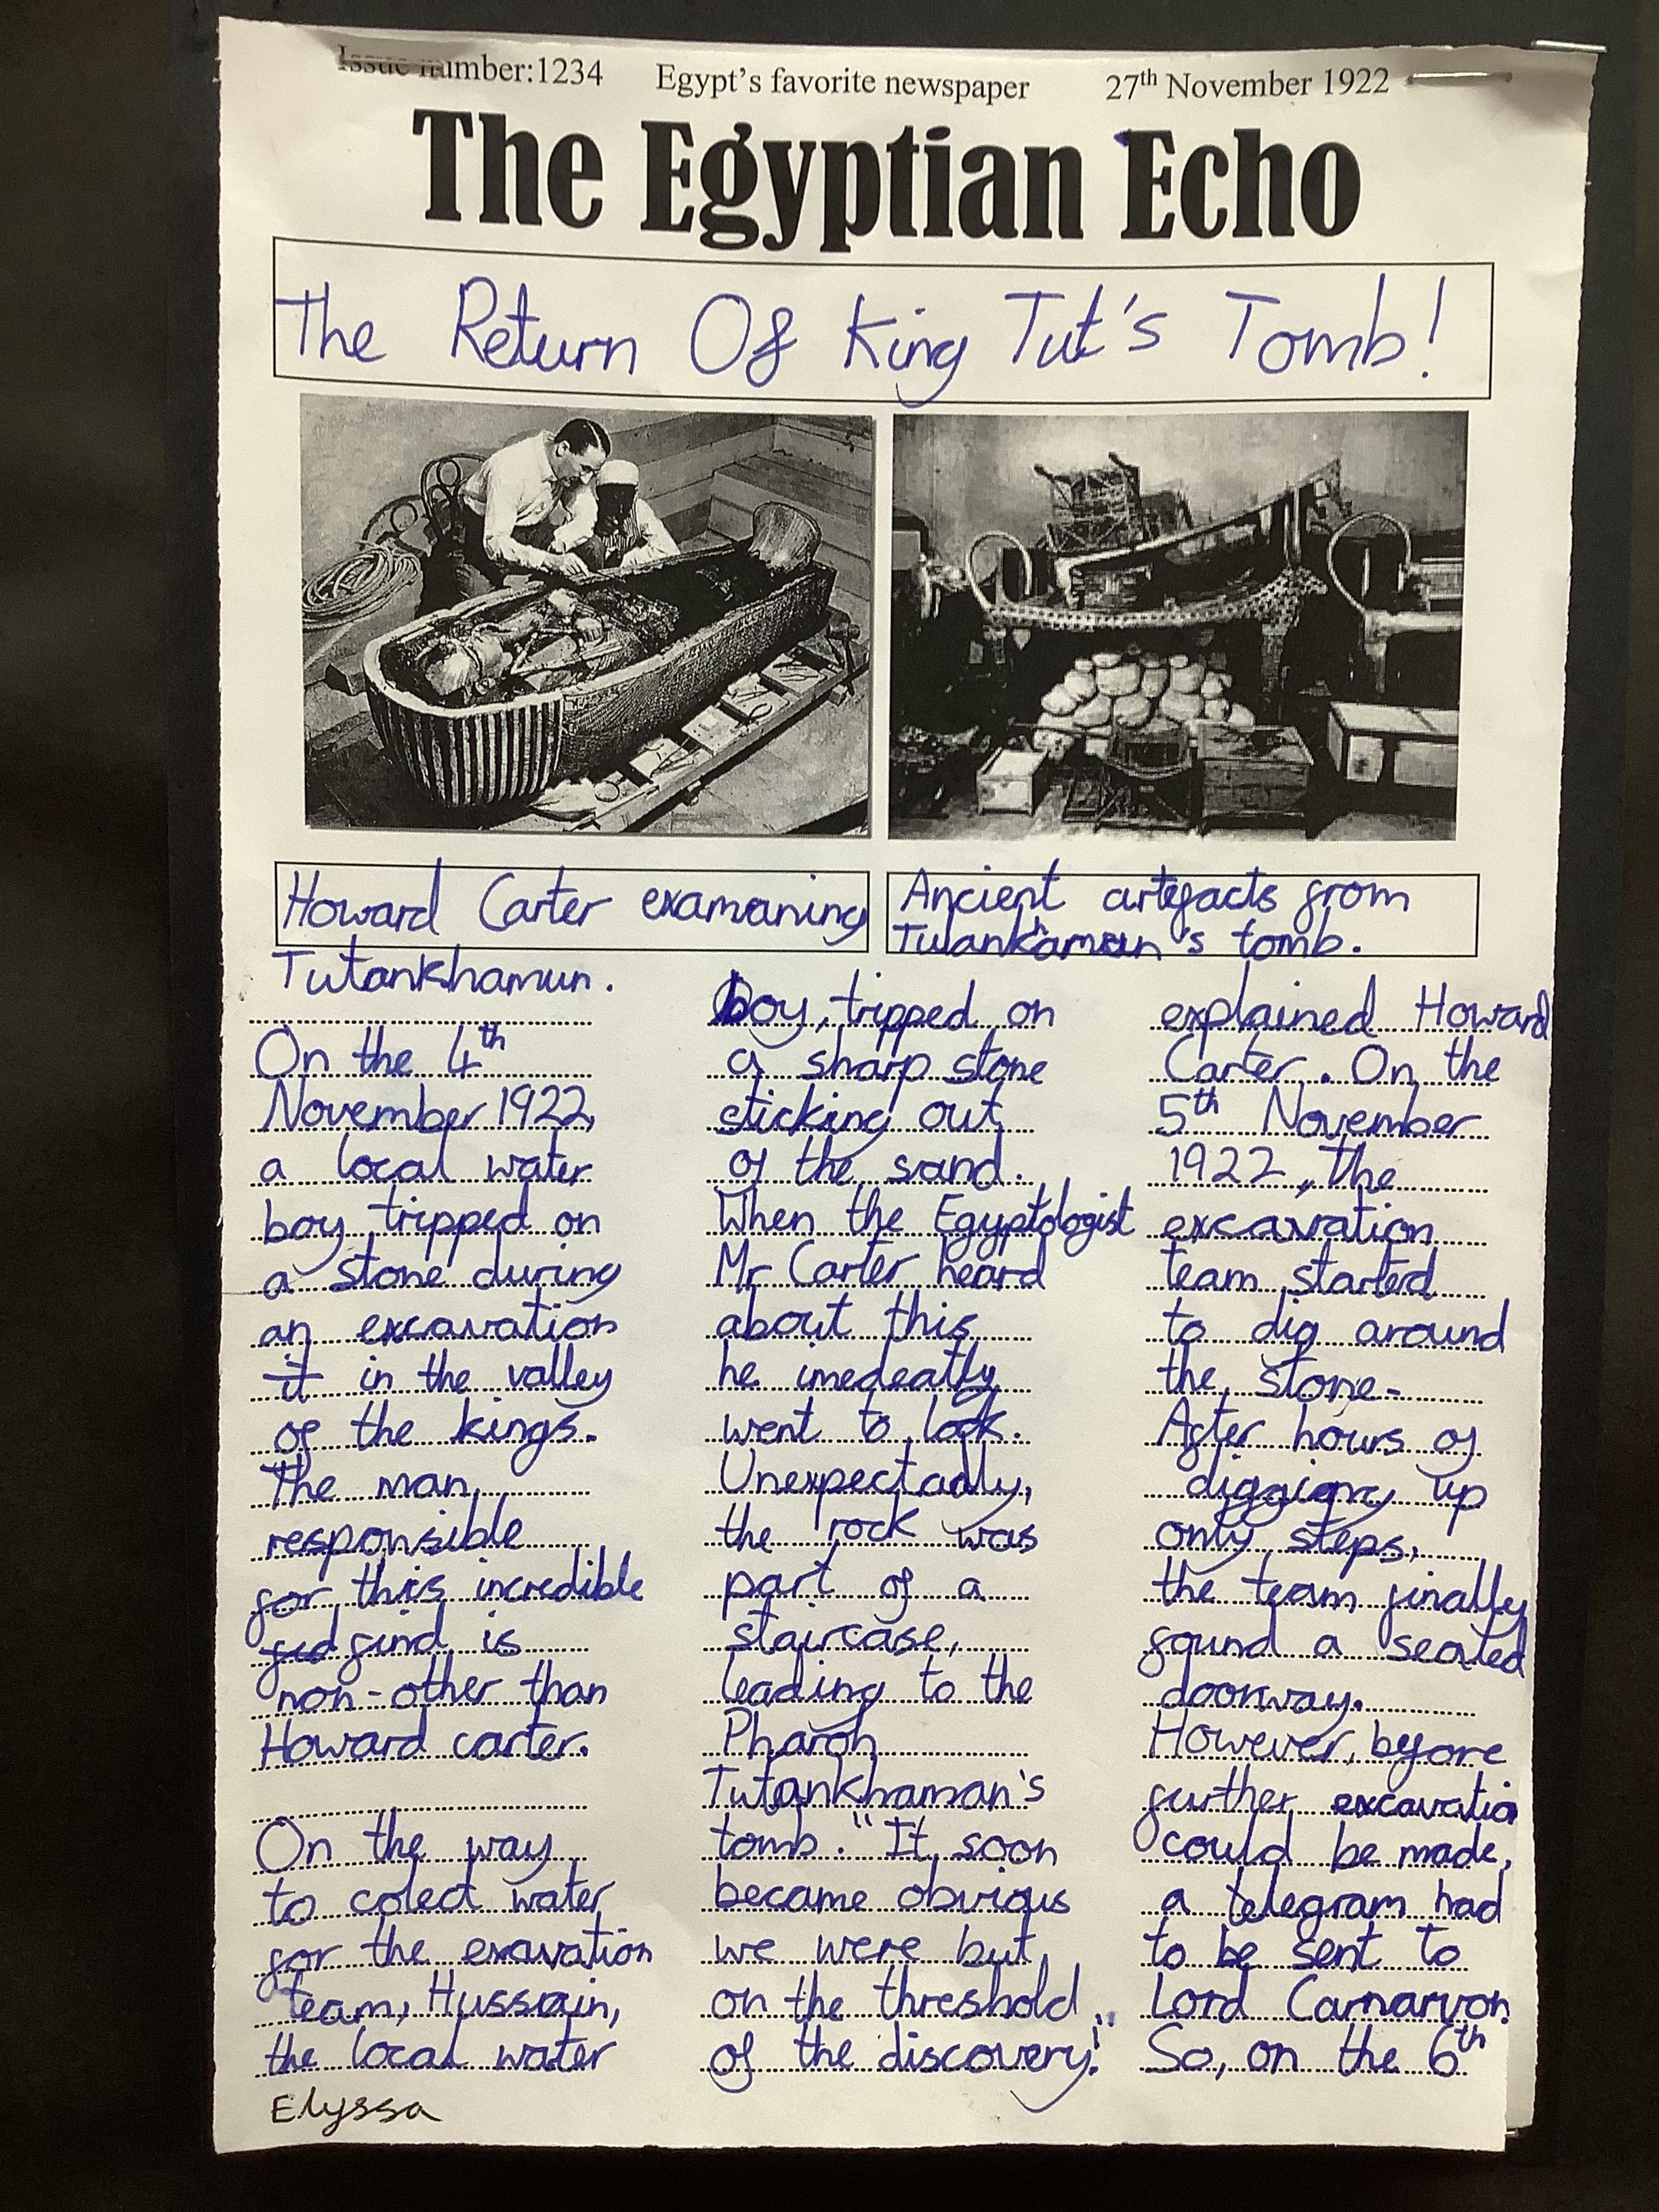 Issue number:1234 Egypt's favorite newspaper 27th November 1922
The Egyptian Echo
The Return Of King Tut's Tomb!
Howard Carter examaning
Tutankhamun.
Ancient artefacts from
Tutankamun's tomb.
On the 4th
November 1922,
a local water
boy tripped on
a stone during
an excavation
it in the valley
of the kings.
The man
responsible
for this incredible
fid find is
non-other than
Howard carter.
On the way
to colect water
for the exavation
team, Hussain,
the local water
boy, tripped on
a sharp stone
sticking out
of the sand.
When the Egyptologist
Mr Carter heard
about this
he imedeatly
went to look.
Unexpectadly,
the rock was
part of a
staircase,
leading to the
Pharoh
Tutankhaman's
tomb. "It soon
became obvious
we were but
on the threshold
of the discovery!"
explained Howard
Carter. On the
5th November
1922, the
excavation
team started
to dig around
the stone.
After hours of
diggiong up
only steps,
the team finally
found a sealed
doorway.
However, before
further excavatio
could be made,
a telegram had
to be sent to
Lord Carnarvon.
So, on the 6th
Elyssa